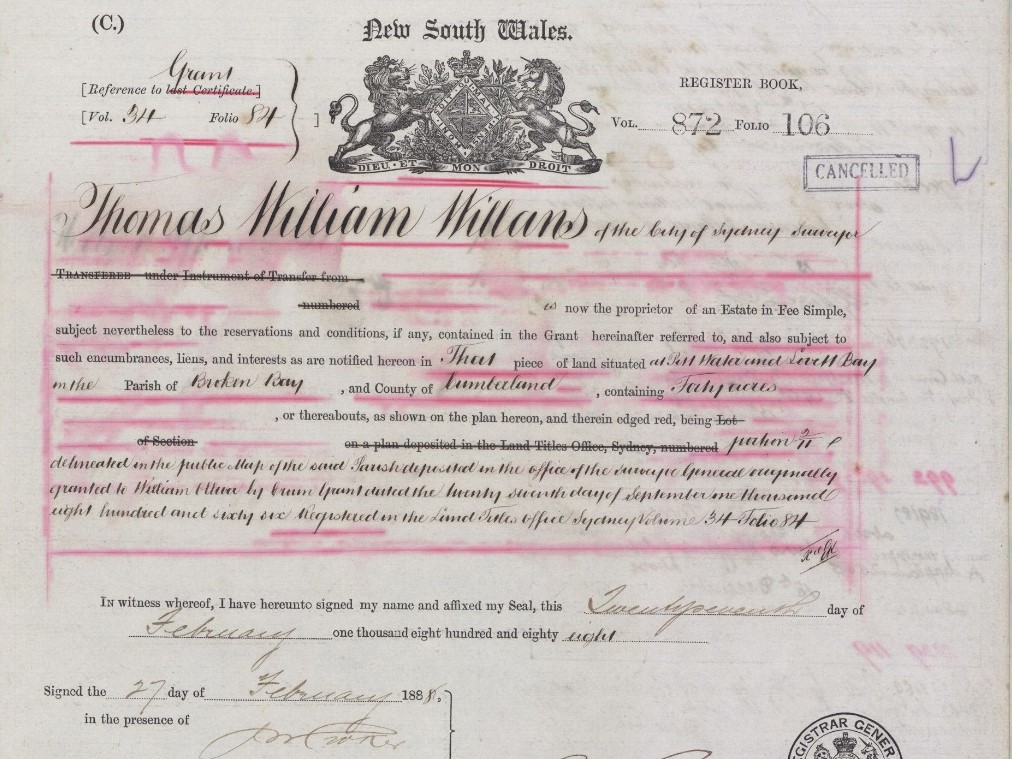 (C.)
New South Wales.
Grant
[Reference to last Certificate.]
[Vol. 34 Folio 84 ]
DIEU · ET MON DROIT
REGISTER BOOK,
VOL. 872 FOLIO 106
CANCELLED
Thomas William Willans of the City of Sydney Surveyor
TRANSFEREE under Instrument of Transfer from
numbered is now the proprietor of an Estate in Fee Simple,
subject nevertheless to the reservations and conditions, if any, contained in the Grant hereinafter referred to, and also subject to
such encumbrances, liens, and interests as are notified hereon in That piece of land situated at Pitt Water and Lovett Bay
in the Parish of Broken Bay , and County of Cumberland , containing Forty acres
, or thereabouts, as shown on the plan hereon, and therein edged red, being Lot
of Section on a plan deposited in the Land Titles Office, Sydney, numbered portion
delineated in the public Map of the said Parish deposited in the office of the Surveyor General originally
granted to William Oliver by Crown Grant dated the twenty seventh day of September one thousand
eight hundred and sixty six Registered in the Land Titles Office Sydney Volume 34 Folio 84
IN witness whereof, I have hereunto signed my name and affixed my Seal, this Twenty seventh day of
February one thousand eight hundred and eighty eight
Signed the 27 day of February 1888,
in the presence of
REGISTRAR GENER